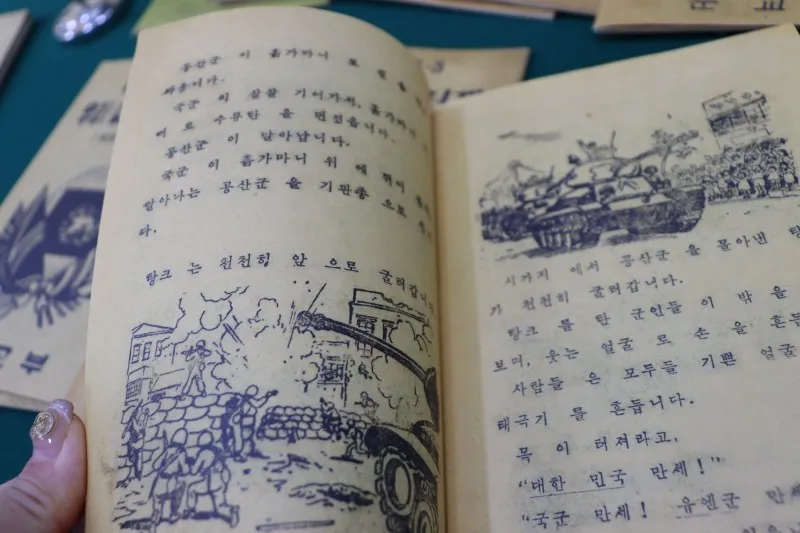 공산군 이 흙가마니 로 몸을
싸웁니다.
국군 이 살살 기어가서, 흙가마니
머 로 수류탄 을 던졌읍니다.
공산군 이 달아납니다.
국군 이 흙가마니 위 에 뛰어
달아나는 공산군 을 기관총 으로
다.
탕크 는 천천히 앞 으로 굴러갑니
시가지 에서 공산군 을 몰아낸
가 천천히 굴러갑니다.
탕크 를 탄 군인들 이 밖 을
보며, 웃는 얼굴 로 손 을 흔듭
사람들 은 모두들 기쁜 얼굴
태극기 를 흔듭니다.
목 이 터져라고,
"대한 민국 만세!"
"국군 만세! 유엔군 만